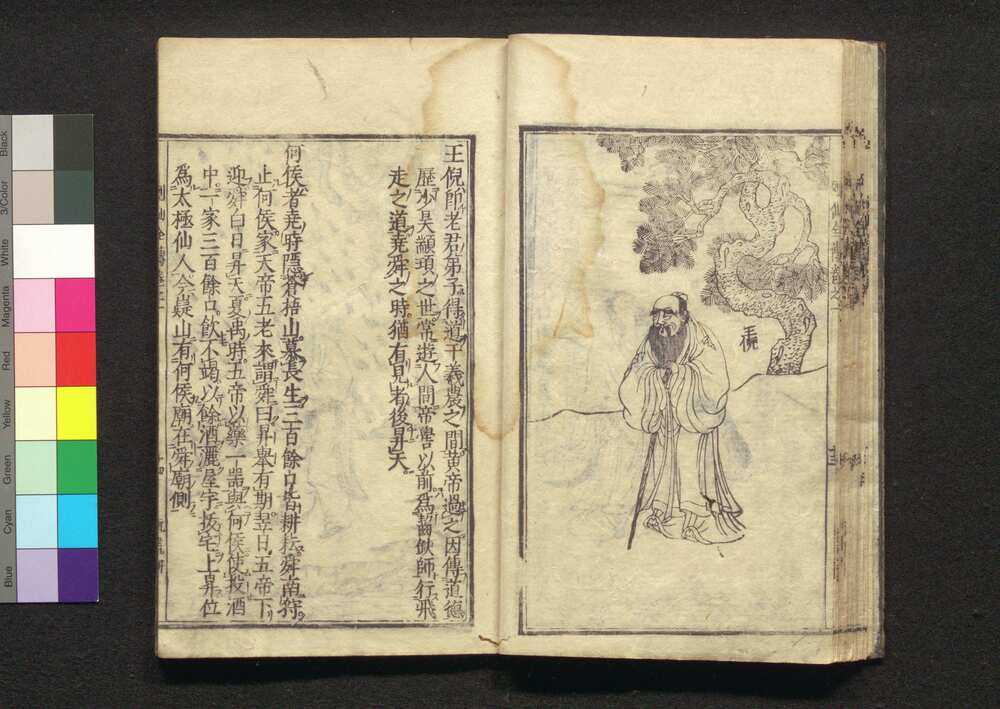 王倪
王倪即老君弟子得道于羲農之間黃帝過之因傳道德
歷少昊顓頊之世常遊人間帝嚳以前為齧缺師行飛
走之道堯舜之時猶有見者後昇天
何侯者堯時隱蒼梧山慕長生三百餘口皆耕耘舜南狩
止何侯家天帝五老來謂舜曰昇舉有期翌日五帝下
迎舜白日昇天夏禹時五帝以藥一器與何侯使投酒
中一家三百餘口飲不竭以餘酒灑屋宇拔宅上昇位
為太極仙人今嶷山有何侯廟在舜廟側
Black
3/Color
White
Magenta
Red
Yellow
Green
Cyan
Blue